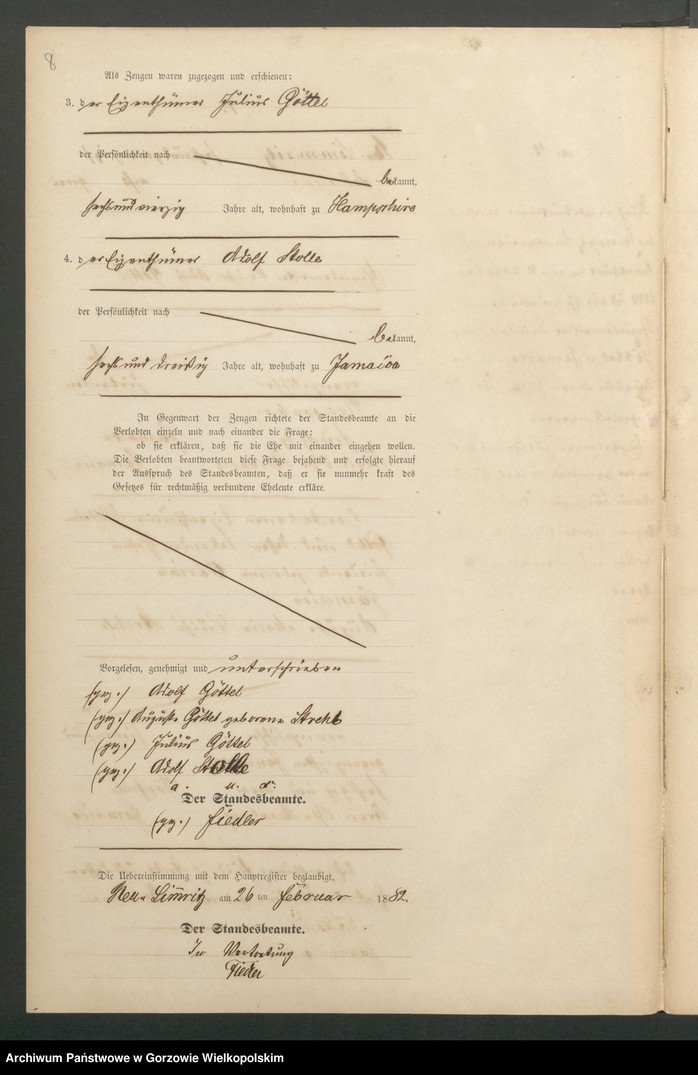 8
Als Zeugen waren zugezogen und erschienen:
3. der Eigenthümer Julius Göttel
der Persönlichkeit nach
bekannt,
sechsundvierzig Jahre alt, wohnhaft zu Hampschire
4. der Eigenthümer Adolf Stolle
der Persönlichkeit nach
bekannt,
sechsunddreißig Jahre alt, wohnhaft zu Jamaica
In Gegenwart der Zeugen richtete der Standesbeamte an die
Verlobten einzeln und nach einander die Frage:
ob sie erklären, daß sie die Ehe mit einander eingehen wollen.
Die Verlobten beantworteten diese Frage bejahend und erfolgte hierauf
der Ausspruch des Standesbeamten, daß er sie nunmehr kraft des
Gesetzes für rechtmäßig verbundene Eheleute erkläre.
Vorgelesen, genehmigt und unterschrieben
(gez.) Adolf Göttel
(gez.) Auguste Göttel geborene Strehl
(gez.) Julius Göttel
(gez.) Adolf Stolle
a. u. s.
Der Standesbeamte.
(gez.) Fiedler
Die Uebereinstimmung mit dem Hauptregister beglaubigt,
Neu-Lim̄ritz am 26 ten Februar 1882.
Der Standesbeamte.
In Vertretung
Fiedler
Archiwum Państwowe w Gorzowie Wielkopolskim